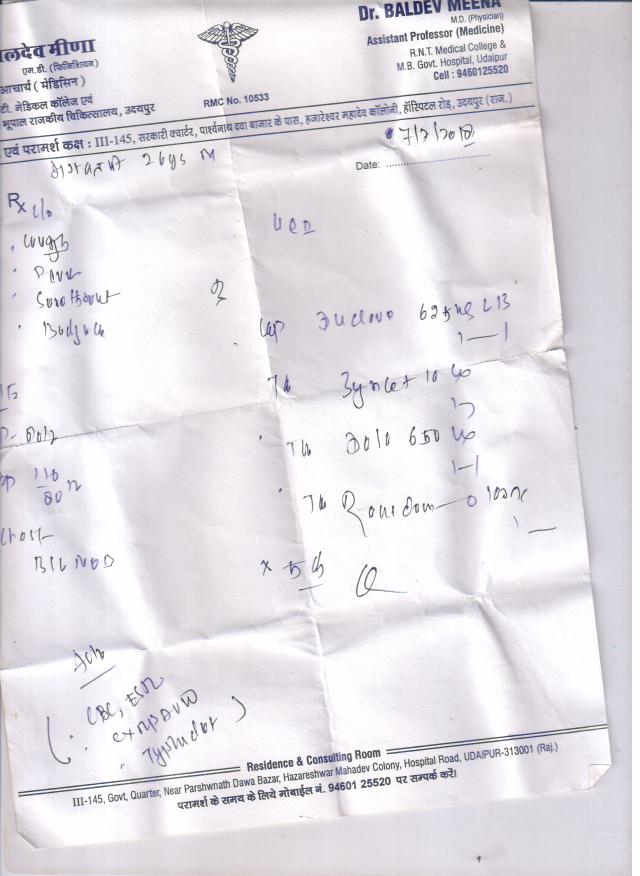 लदेव मीणा
एम.डी. (फिजिशियन)
आचार्य ( मेडिसिन )
टी. मेडिकल कॉलेज एवं
भूपाल राजकीय चिकित्सालय, उदयपुर
RMC No. 10533
Dr. BALDEV MEENA
M.D. (Physician)
Assistant Professor (Medicine)
R.N.T. Medical College &
M.B. Govt. Hospital, Udaipur
Cell : 9460125520
एवं परामर्श कक्ष : III-145, सरकारी क्वार्टर, पार्श्वनाथ दवा बाजार के पास, हजारेश्वर महादेव कॉलोनी, हॉस्पिटल रोड, उदयपुर (राज.)
26 yrs M
Date:
Rx c/o
cough
Sorethroat
Bodyache
Cap 625mg
1—1
Tab 10
Tab Dolo 650
1—1
Tab
110
80
Chest
B/L NAD
x 5 d
Adv
CBC, ESR
Typhidot
Residence & Consulting Room
III-145, Govt, Quarter, Near Parshwnath Dawa Bazar, Hazareshwar Mahadev Colony, Hospital Road, UDAIPUR-313001 (Raj.)
परामर्श के समय के लिये मोबाईल नं. 94601 25520 पर सम्पर्क करें।